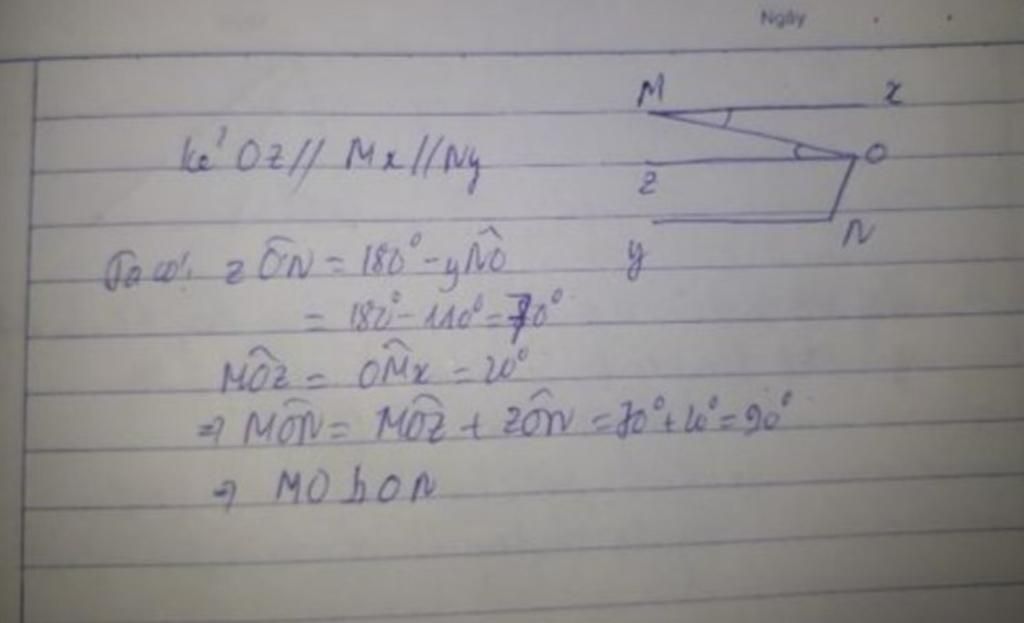 Ngày
M x
kẻ Oz // Mx // Ny
O
z
y N
Ta có: zÔN = 180° - yN̂O
= 180° - 110° = 70°
MÔz = OM̂x = 20°
⇒ MÔN = MÔZ + ZÔN = 70° + 20° = 90°
⇒ MO ⊥ ON